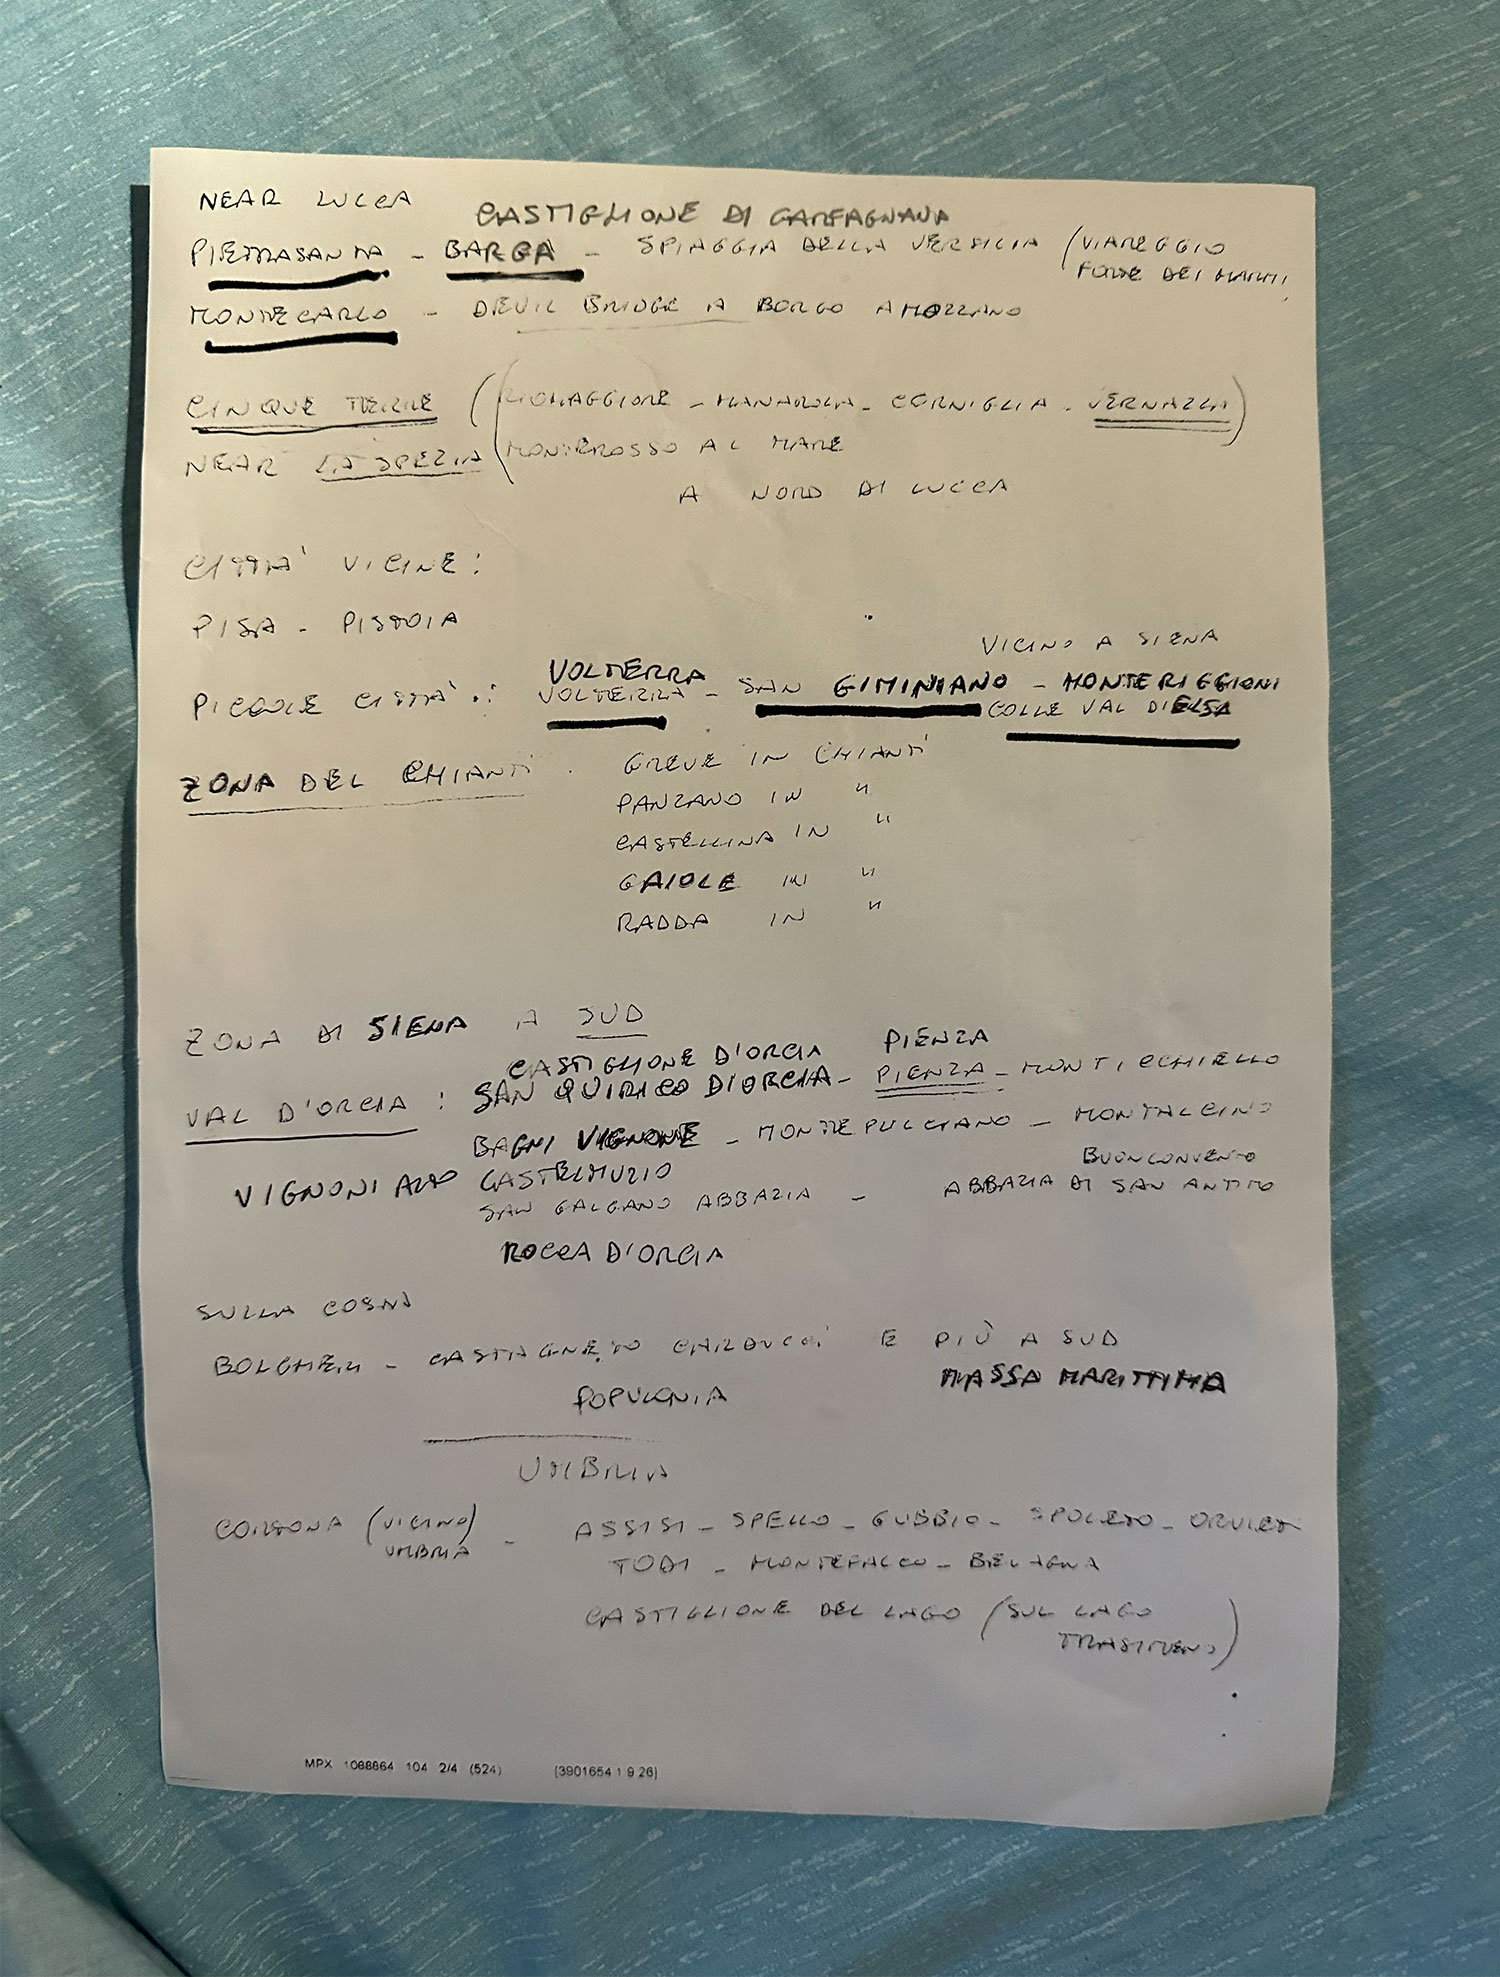 NEAR LUCCA
CASTIGLIONE DI GARFAGNANA
PIETRASANTA - BARGA - SPIAGGIA DELLA VERSILIA (VIAREGGIO
FORTE DEI MARMI
MONTECARLO - DEVIL BRIDGE A BORGO A MOZZANO
CINQUE TERRE (RIOMAGGIORE - MANAROLA - CORNIGLIA - VERNAZZA)
NEAR LA SPEZIA (MONTEROSSO AL MARE
A NORD DI LUCCA
CITTA' VICINE:
PISA - PISTOIA
VICINO A SIENA
VOLTERRA
PICCOLE CITTA': VOLTERRA - SAN GIMINIANO - MONTERIGGIONI
COLLE VAL D'ELSA
ZONA DEL CHIANTI - GREVE IN CHIANTI
PANZANO IN "
CASTELLINA IN "
GAIOLE IN "
RADDA IN "
ZONA DI SIENA A SUD
CASTIGLIONE D'ORCIA PIENZA
VAL D'ORCIA: SAN QUIRICO D'ORCIA - PIENZA - MONTICCHIELLO
BAGNI VIGNONE - MONTEPULCIANO - MONTALCINO
BUONCONVENTO
VIGNONI ALTO CASTELMUZIO
SAN GALGANO ABBAZIA - ABBAZIA DI SAN ANTIMO
ROCCA D'ORCIA
SULLA COSTA
BOLGHERI - CASTAGNETO CARDUCCI E PIÙ A SUD
POPULONIA MASSA MARITTIMA
UMBRIA
CORTONA (VICINO) - ASSISI - SPELLO - GUBBIO - SPOLETO - ORVIETO
UMBRIA TODI - MONTEFALCO - BEVAGNA
CASTIGLIONE DEL LAGO (SUL LAGO
TRASIMENO)
MPX 1068864 104 2/4 (524) [3901654 1.9.26]